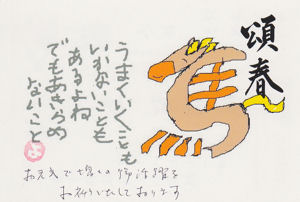 頌春
うまくいくことも
いかないことも
あるよね
でもあきらめ
ないこと
よ
お元気で皆々御活躍を
お祈りいたしております